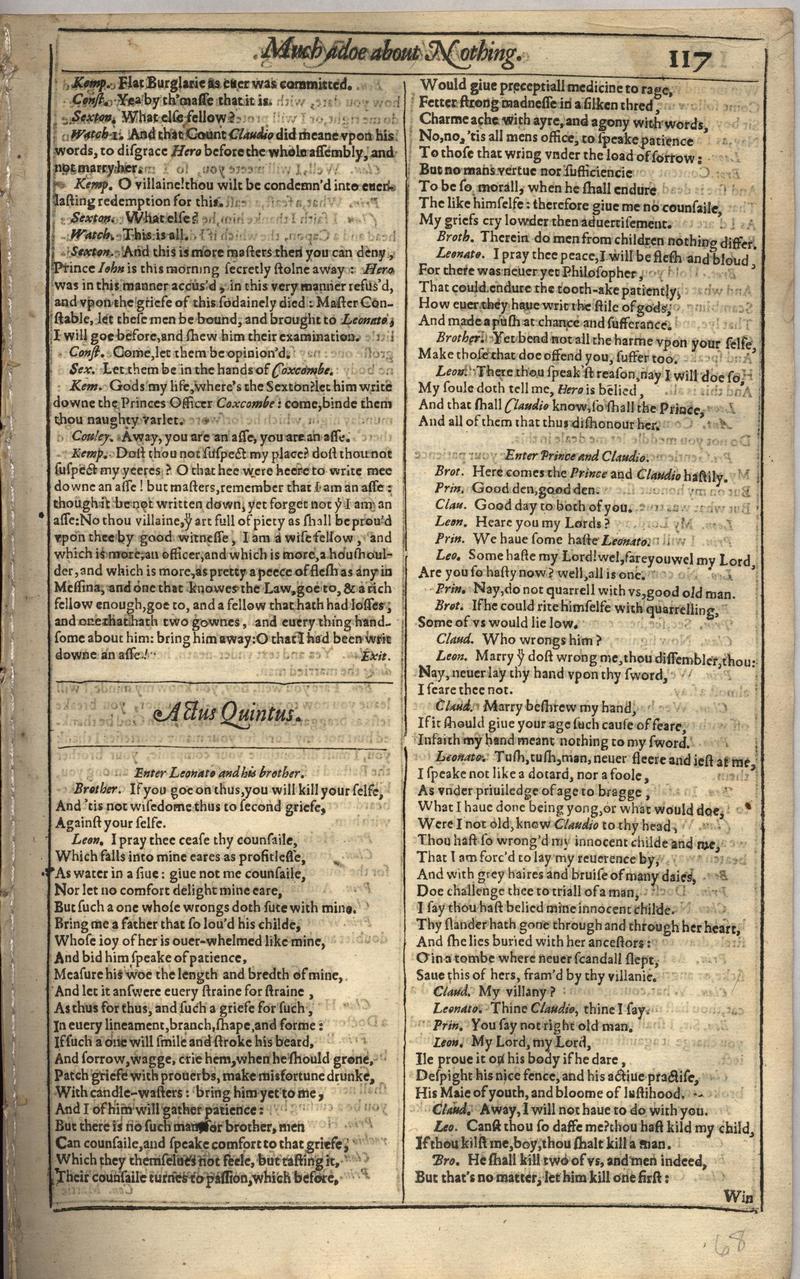 Much adoe about Nothing. 117
Kemp. Flat Burglarie as euer was committed.
Const. Yea by th'masse that it is.
Sexton. What else fellow?
Watch 1. And that Count Claudio did meane vpon his
words, to disgrace Hero before the whole assembly, and
not marry her.
Kemp. O villaine! thou wilt be condemn'd into euer-
lasting redemption for this.
Sexton. What else?
Watch. This is all.
Sexton. And this is more masters then you can deny,
Prince Iohn is this morning secretly stolne away: Hero
was in this manner accus'd, in this very manner refus'd,
and vpon the griefe of this sodainely died: Master Con-
stable, let these men be bound, and brought to Leonato,
I will goe before, and shew him their examination.
Const. Come, let them be opinion'd.
Sex. Let them be in the hands of Coxcombe.
Kem. Gods my life, where's the Sexton? let him write
downe the Princes Officer Coxcombe: come, binde them
thou naughty varlet.
Couley. Away, you are an asse, you are an asse.
Kemp. Dost thou not suspect my place? dost thou not
suspect my yeeres? O that hee were heere to write mee
downe an asse! but masters, remember that I am an asse:
though it be not written down, yet forget not yͭ I am an
asse: No thou villaine, yᵘ art full of piety as shall be prou'd
vpon thee by good witnesse, I am a wise fellow, and
which is more, an officer, and which is more, a houshoul-
der, and which is more, as pretty a peece of flesh as any in
Messina, and one that knowes the Law, goe to, & a rich
fellow enough, goe to, and a fellow that hath had losses,
and one that hath two gownes, and euery thing hand-
some about him: bring him away: O that I had been writ
downe an asse! Exit.
Actus Quintus.
Enter Leonato and his brother.
Brother. If you goe on thus, you will kill your selfe,
And 'tis not wisedome thus to second griefe,
Against your selfe.
Leon. I pray thee cease thy counsaile,
Which falls into mine eares as profitlesse,
As water in a siue: giue not me counsaile,
Nor let no comfort delight mine eare,
But such a one whose wrongs doth sute with mine.
Bring me a father that so lou'd his childe,
Whose ioy of her is ouer-whelmed like mine,
And bid him speake of patience,
Measure his woe the length and bredth of mine,
And let it answere euery straine for straine,
As thus for thus, and such a griefe for such,
In euery lineament, branch, shape, and forme:
If such a one will smile and stroke his beard,
And sorrow, wagge, crie hem, when he should grone,
Patch griefe with prouerbs, make misfortune drunke,
With candle-wasters: bring him yet to me,
And I of him will gather patience:
But there is no such man, for brother, men
Can counsaile, and speake comfort to that griefe,
Which they themselues not feele, but tasting it,
Their counsaile turnes to passion, which before,
Would giue preceptiall medicine to rage,
Fetter strong madnesse in a silken thred,
Charme ache with ayre, and agony with words,
No, no, 'tis all mens office, to speake patience
To those that wring vnder the load of sorrow:
But no mans vertue nor sufficiencie
To be so morall, when he shall endure
The like himselfe: therefore giue me no counsaile,
My griefs cry lowder then aduertisement.
Broth. Therein do men from children nothing differ.
Leonato. I pray thee peace, I will be flesh and bloud,
For there was neuer yet Philosopher,
That could endure the tooth-ake patiently,
How euer they haue writ the stile of gods,
And made a push at chance and sufferance.
Brother. Yet bend not all the harme vpon your selfe,
Make those that doe offend you, suffer too.
Leon. There thou speak'st reason, nay I will doe so,
My soule doth tell me, Hero is belied,
And that shall Claudio know, so shall the Prince,
And all of them that thus dishonour her.
Enter Prince and Claudio.
Brot. Here comes the Prince and Claudio hastily.
Prin. Good den, good den.
Clau. Good day to both of you.
Leon. Heare you my Lords?
Prin. We haue some haste Leonato.
Leo. Some haste my Lord! wel, fare you wel my Lord,
Are you so hasty now? well, all is one.
Prin. Nay, do not quarrell with vs, good old man.
Brot. If he could rite himselfe with quarrelling,
Some of vs would lie low.
Claud. Who wrongs him?
Leon. Marry yᵘ dost wrong me, thou dissembler, thou:
Nay, neuer lay thy hand vpon thy sword,
I feare thee not.
Claud. Marry beshrew my hand,
If it should giue your age such cause of feare,
Infaith my hand meant nothing to my sword.
Leonato. Tush, tush, man, neuer fleere and iest at me,
I speake not like a dotard, nor a foole,
As vnder priuiledge of age to bragge,
What I haue done being yong, or what would doe,
Were I not old, know Claudio to thy head,
Thou hast so wrong'd my innocent childe and me,
That I am forc'd to lay my reuerence by,
And with grey haires and bruise of many daies,
Doe challenge thee to triall of a man,
I say thou hast belied mine innocent childe.
Thy slander hath gone through and through her heart,
And she lies buried with her ancestors:
O in a tombe where neuer scandall slept,
Saue this of hers, fram'd by thy villanie.
Claud. My villany?
Leonato. Thine Claudio, thine I say.
Prin. You say not right old man.
Leon. My Lord, my Lord,
Ile proue it on his body if he dare,
Despight his nice fence, and his actiue practise,
His Maie of youth, and bloome of lustihood.
Claud. Away, I will not haue to do with you.
Leo. Canst thou so daffe me? thou hast kild my child,
If thou kilst me, boy, thou shalt kill a man.
Bro. He shall kill two of vs, and men indeed,
But that's no matter, let him kill one first:
Win
68